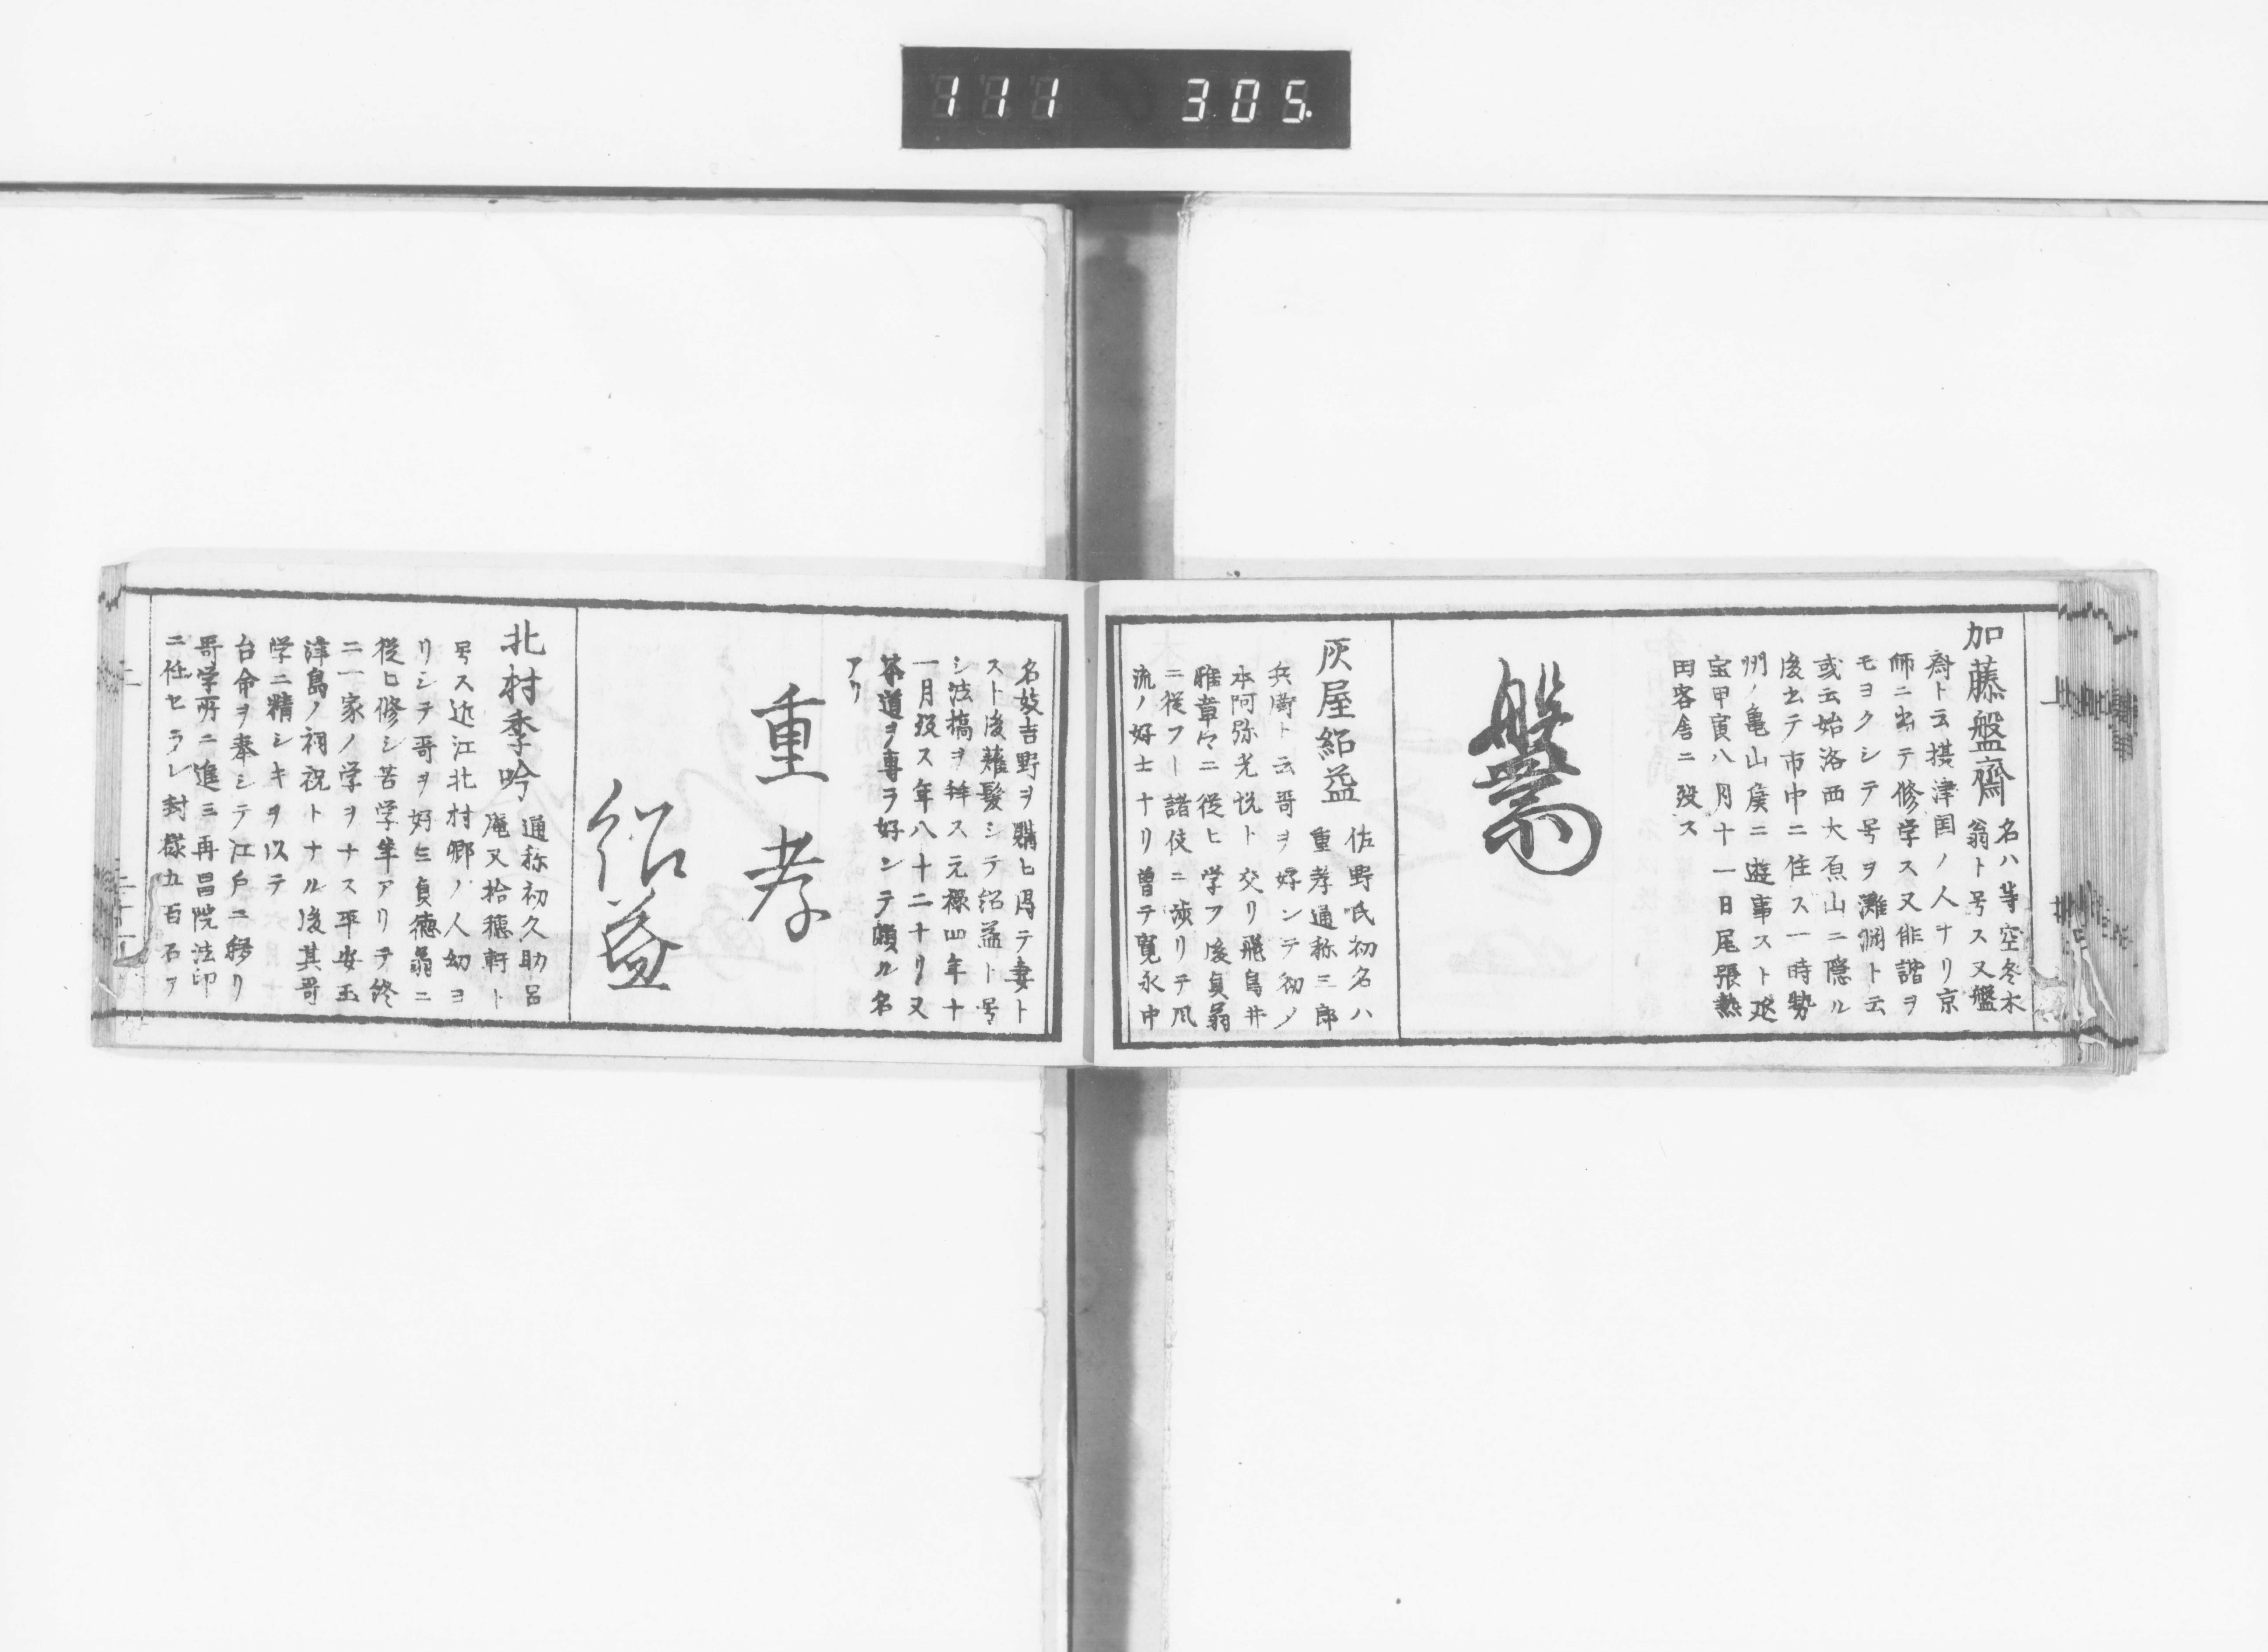 111 305.
加藤盤齋 名ハ等空冬木
翁ト号ス又盤
斎ト云摂津国ノ人ナリ京
師ニ出テ修学ス又俳諧ヲ
モヨクシテ号ヲ灘洞ト云
或云始洛西大原山ニ隠ル
後出テ市中ニ住ス一時勢
州ノ亀山侯ニ遊事スト延
宝甲寅八月十一日尾張熱
田客舎ニ歿ス
灰屋紹益 佐野氏初名ハ
重孝通称三郎
兵衛ト云哥ヲ好ンテ初ノ
本阿弥光悦ト交リ飛鳥井
雅章公ニ従ヒ学フ後貞翁
ニ従フ諸伎ニ渉リテ風
流ノ好士ナリ曽テ寛永中
名妓吉野ヲ購ヒ得テ妻ト
スト後薙髪シテ紹益ト号
シ法橋ヲ拝ス元禄四年十
一月歿ス年八十二ナリ又
茶道ヲ専ラ好ンテ頗ル名
アリ
重孝
紹益
北村季吟 通称初久助呂
庵又拾穂軒ト
号ス近江北村郷ノ人幼ヨ
リシテ哥ヲ好ミ貞徳翁ニ
従ヒ修シ苦学年アリテ終
ニ一家ノ学ヲナス平安玉
津島ノ祠祝トナル後其哥
学ニ精シキヲ以テ
台命ヲ奉シテ江戸ニ移リ
哥学所ニ進ミ再昌院法印
ニ任セラレ封禄五百石ヲ